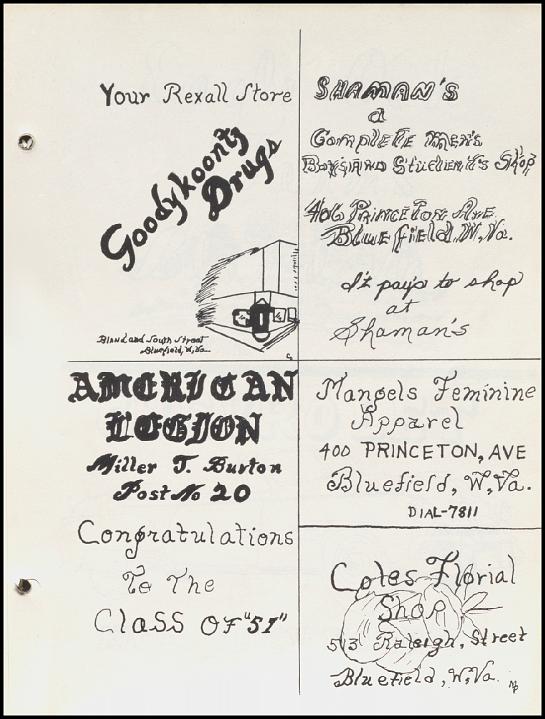 Your Rexall Store
Goodykoontz
Drugs
Bland and South Street
Bluefield, W, Va.
SHAMAN'S
a
Complete Men's
Boys and Student's Shop
406 Princeton Ave
Bluefield, W, Va.
It pays to shop
at
Shaman's
AMERICAN
LEGION
Miller T. Burton
Post No 20
Congratulations
To The
CLASS OF "51"
Mangels Feminine
Apparel
400 PRINCETON, AVE
Bluefield, W, Va.
DIAL-7811
Coles Florial
Shop
513 Raleigh, Street
Bluefield, W, Va.